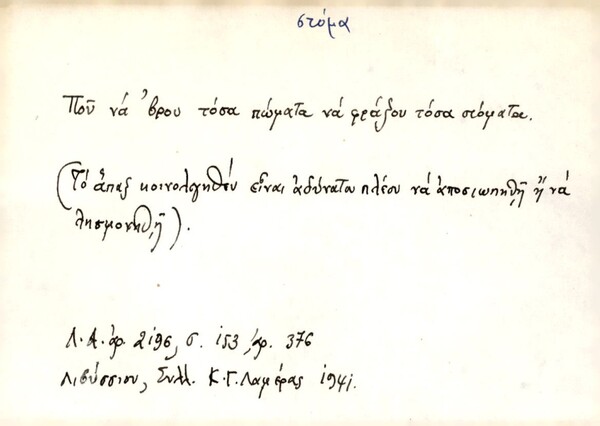 στόμα
Ποῦ νά 'βρου τόσα πώματα νά φράξου τόσα στόματα.
(Τό ἅπαξ κοινολογηθέν εἶναι ἀδύνατον πλέον νά ἀποσιωπηθῇ ἤ νά
λησμονηθῇ).
Λ.Α. ἀρ. 2196, σ. 153, ἀρ. 376
Λιβύσσιον, Συλλ. Κ.Γ. Λαμέρας 1941.